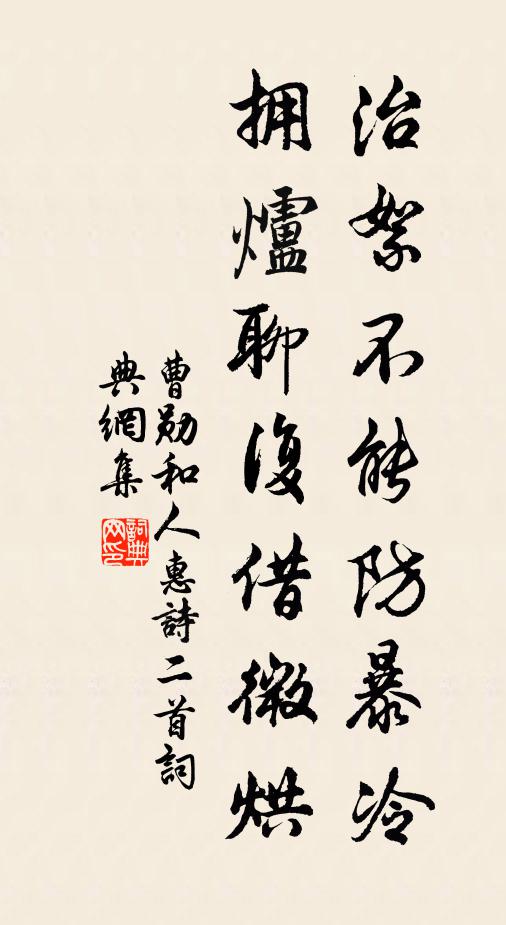 治絮不能防暴冷
拥爐聊復借微烘
曹勋和人惠詩二首詞
典網集
詞典网印